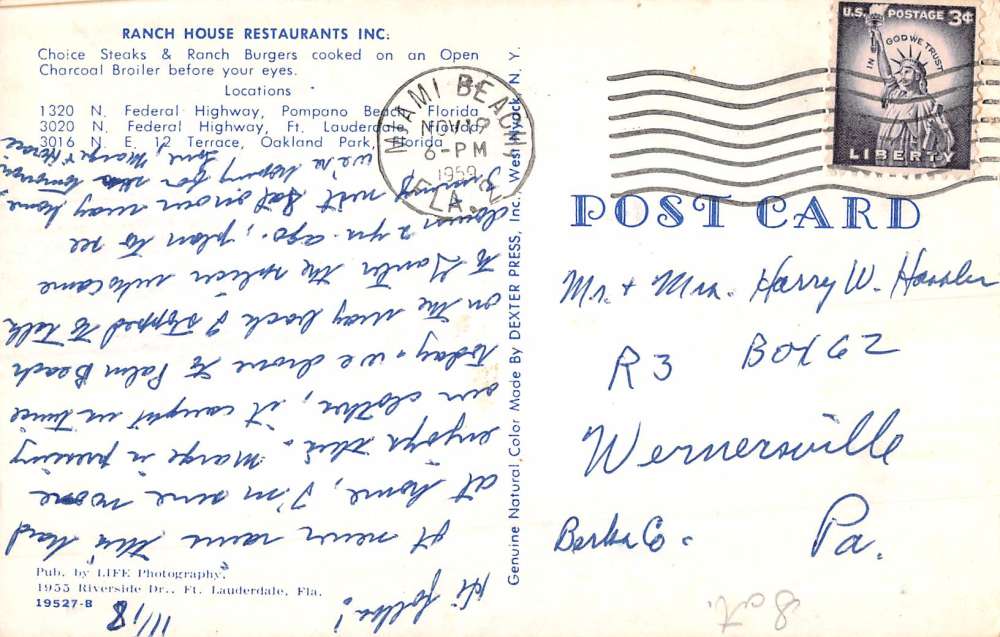 RANCH HOUSE RESTAURANTS INC:
Choice Steaks & Ranch Burgers cooked on an Open
Charcoal Broiler before your eyes.
Locations
1320 N. Federal Highway, Pompano Beach, Florida
3020 N. Federal Highway, Ft. Lauderdale, Florida
3016 N. E. 12 Terrace, Oakland Park, Florida
MIAMI BEACH
NOV 19
6-PM
1959
FLA.
U.S. POSTAGE 3¢
IN GOD WE TRUST
LIBERTY
POST CARD
Mr. + Mrs. Harry W.
R3 BOX 62
Wernersville
Berks Co. Pa.
Sat.
Genuine Natural Color Made By DEXTER PRESS, Inc., West Nyack, N. Y.
11/18
Hi folks!
It never rains this hard
at home, I'm sure no one
enjoys this. Marge is pressing
our clothes, it caught us twice
today. We drove to Palm Beach
on the way back I stopped to talk
to the who came
down 2 yrs. ago., plan to see
him next Sat on our way home
We're hoping for tomorrow
Love, Marge +
Pub. by LIFE Photography,
1955 Riverside Dr., Ft. Lauderdale, Fla.
19527-B